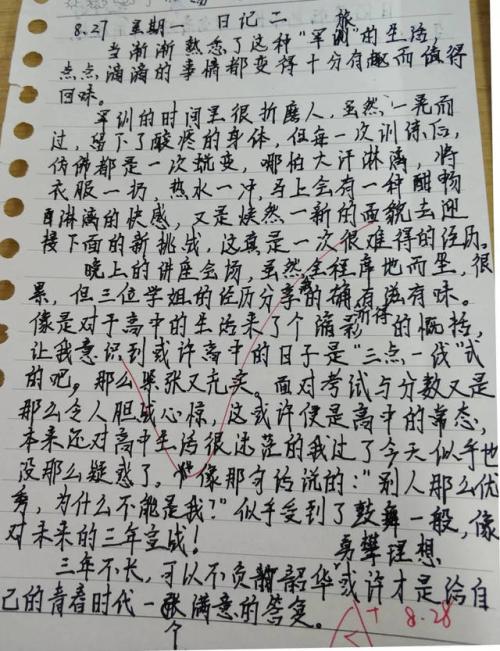 8.27 星期一 日记二 旅
当渐渐熟悉了这种“军训”的生活,
点点滴滴的事情都变得十分有趣而值得
回味。
军训的时间里很折磨人,虽然一晃而
过,留下了酸疼的身体,但每一次训练后,
仿佛都是一次蜕变,哪怕大汗淋漓,将
衣服一扔,热水一冲,马上会有一种酣畅
淋漓的快感,又是焕然一新的面貌去迎
接下面的新挑战,这真是一次很难得的经历。
晚上的讲座会场,虽然全程席地而坐,很
累,但三位学姐的经历分享的确有滋有味。
像是对于高中的生活来了个缩影所得的概括,
让我意识到或许高中的日子是“三点一线”式
的吧,那么紧张又充实。面对考试与分数又是
那么令人胆战心惊,这或许便是高中的常态,
本来还对高中生活很迷茫的我过了今天似乎也
没那么疑惑了。像那句话说的:“别人那么优
秀,为什么不能是我?”似乎受到了鼓舞一般,像
对未来的三年宣战!
勇攀理想
三年不长,可以不负韶华或许才是给自
己的青春时代一个满意的答复。
A+ 8.28